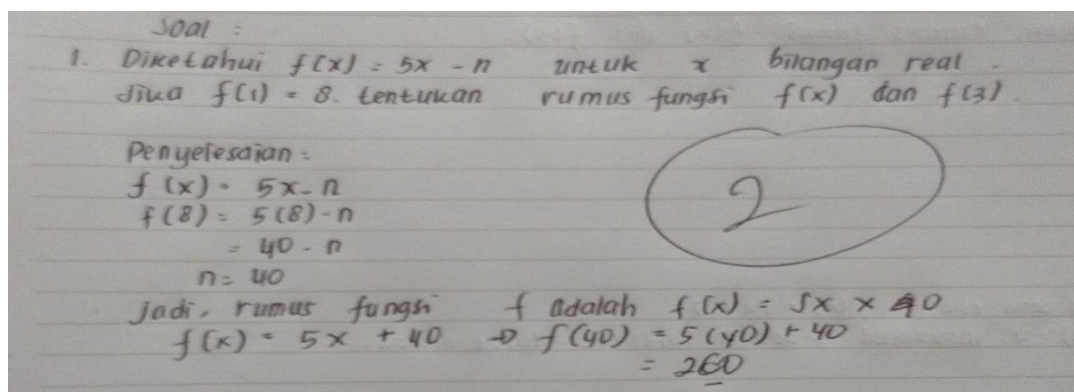 Soal :
1. Diketahui f(x) = 5x - n untuk x bilangan real.
Jika f(1) = 8. tentukan rumus fungsi f(x) dan f(3).
Penyelesaian :
f(x) = 5x - n
f(8) = 5(8) - n
= 40 - n
n = 40
2
jadi, rumus fungsi f adalah f(x) = 5x x 40
f(x) = 5x + 40 → f(40) = 5(40) + 40
= 260